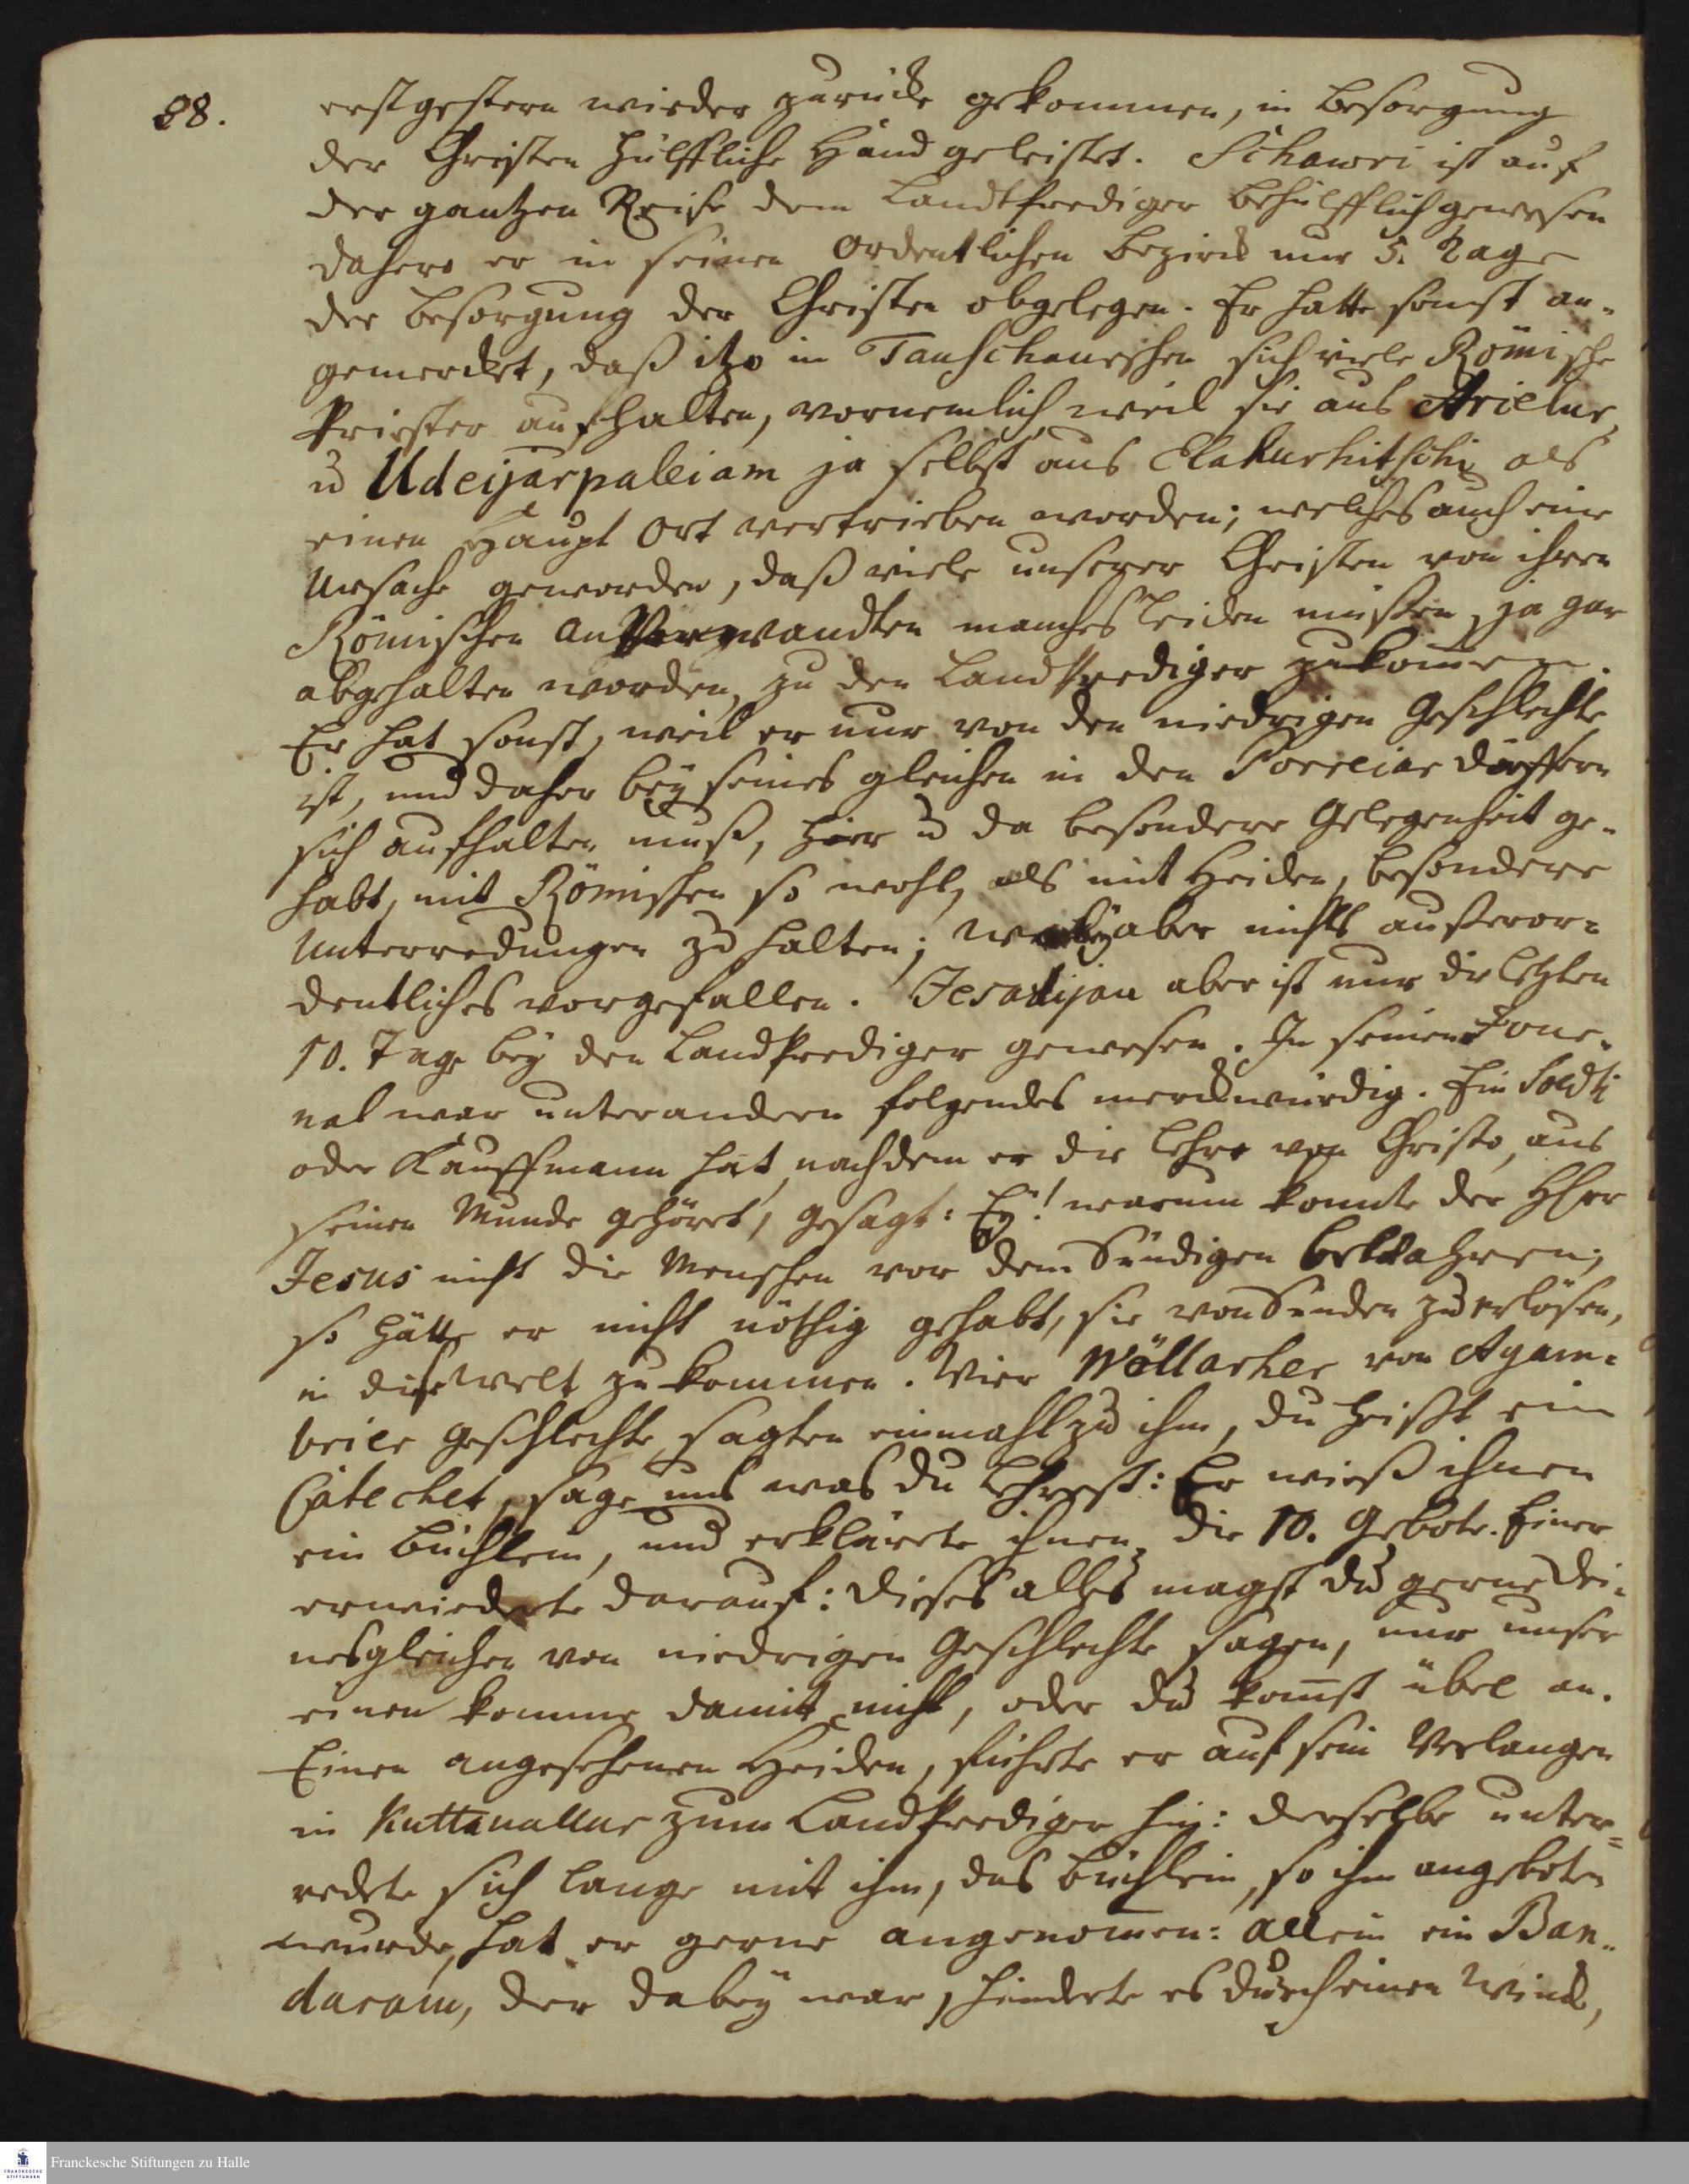 28.
erst gestern wieder zurück gekommen, in Besorgung
der Christen hülffliche Hand geleistet. Schawri ist auf
der gantzen Reise dem Landtprediger behülfflich gewesen
dahero er in seinen ordentlichen Bezirck nur 5. Tage
der Besorgung der Christen obgelegen. Er hatte sonst an-
gemercket, daß itzo in Tanschaurschen sich viele Römische
Priester aufhalten, vornemlich weil sie aus Arielur
u Udeijarpaleiam ja selbst aus Elakurhitschi als
einen Haupt Ort vertrieben worden; welches auch eine
Ursache geworden, daß viele unserer Christen von ihren
Römischen Anverwandten manches leiden müßen, ja gar
abgehalten worden, zu den Landprediger zukom̄en.
Er hat sonst, weil er nur von den niedrigen Geschlechte
ist, und daher bey seines gleichen in den Porreiar dörffern
sich aufhalten muß, hier u da besondere Gelegenheit ge-
habt, mit Römischen so wohl, als mit Heiden, besondere
Unterredungen zu halten; wobey aber nichts außeror-
dentliches vorgefallen. Jesadijan aber ist nur die letzten
10. Tage bey den Landprediger gewesen. In seinem Jour-
nal war unter andern folgendes merckwürdig. Ein Soldti
oder Kauffmann hat, nachdem er die Lehre von Christo, aus
seinen Munde gehöret, gesagt: Ey! warum konte der HErr
Jesus nicht die Menschen vor dem Sündigen bewahren,
so hätte er nicht nöthig gehabt, sie von Sünden zu erlösen,
in diese Welt zu kommen. Vier Wöllarher von Agam-
beier Geschlechte sagten einmahl zu ihm, du heißt ein
Catechet, sage uns was du lehrest: Er wieß ihnen
ein Büchlein, und erklärete ihnen die 10. Gebote. Einer
erwiederte darauf: dieses alles magst du gerne dei-
nesgleichen von niedrigen Geschlechte sagen, nur unser
einen komme damit nicht, oder du kom̄st übel an.
Einen angesehenen Heiden, führte er auf sein Verlangen
in Kuttanallur zum Landprediger hin: derselbe unter-
redete sich lange mit ihm, das Büchlein, so ihm angeboten
wurde, hat er gerne angenom̄en: allein ein Ban-
daram, der dabey war, hinderte es durch einen Winck,
Franckesche Stiftungen zu Halle